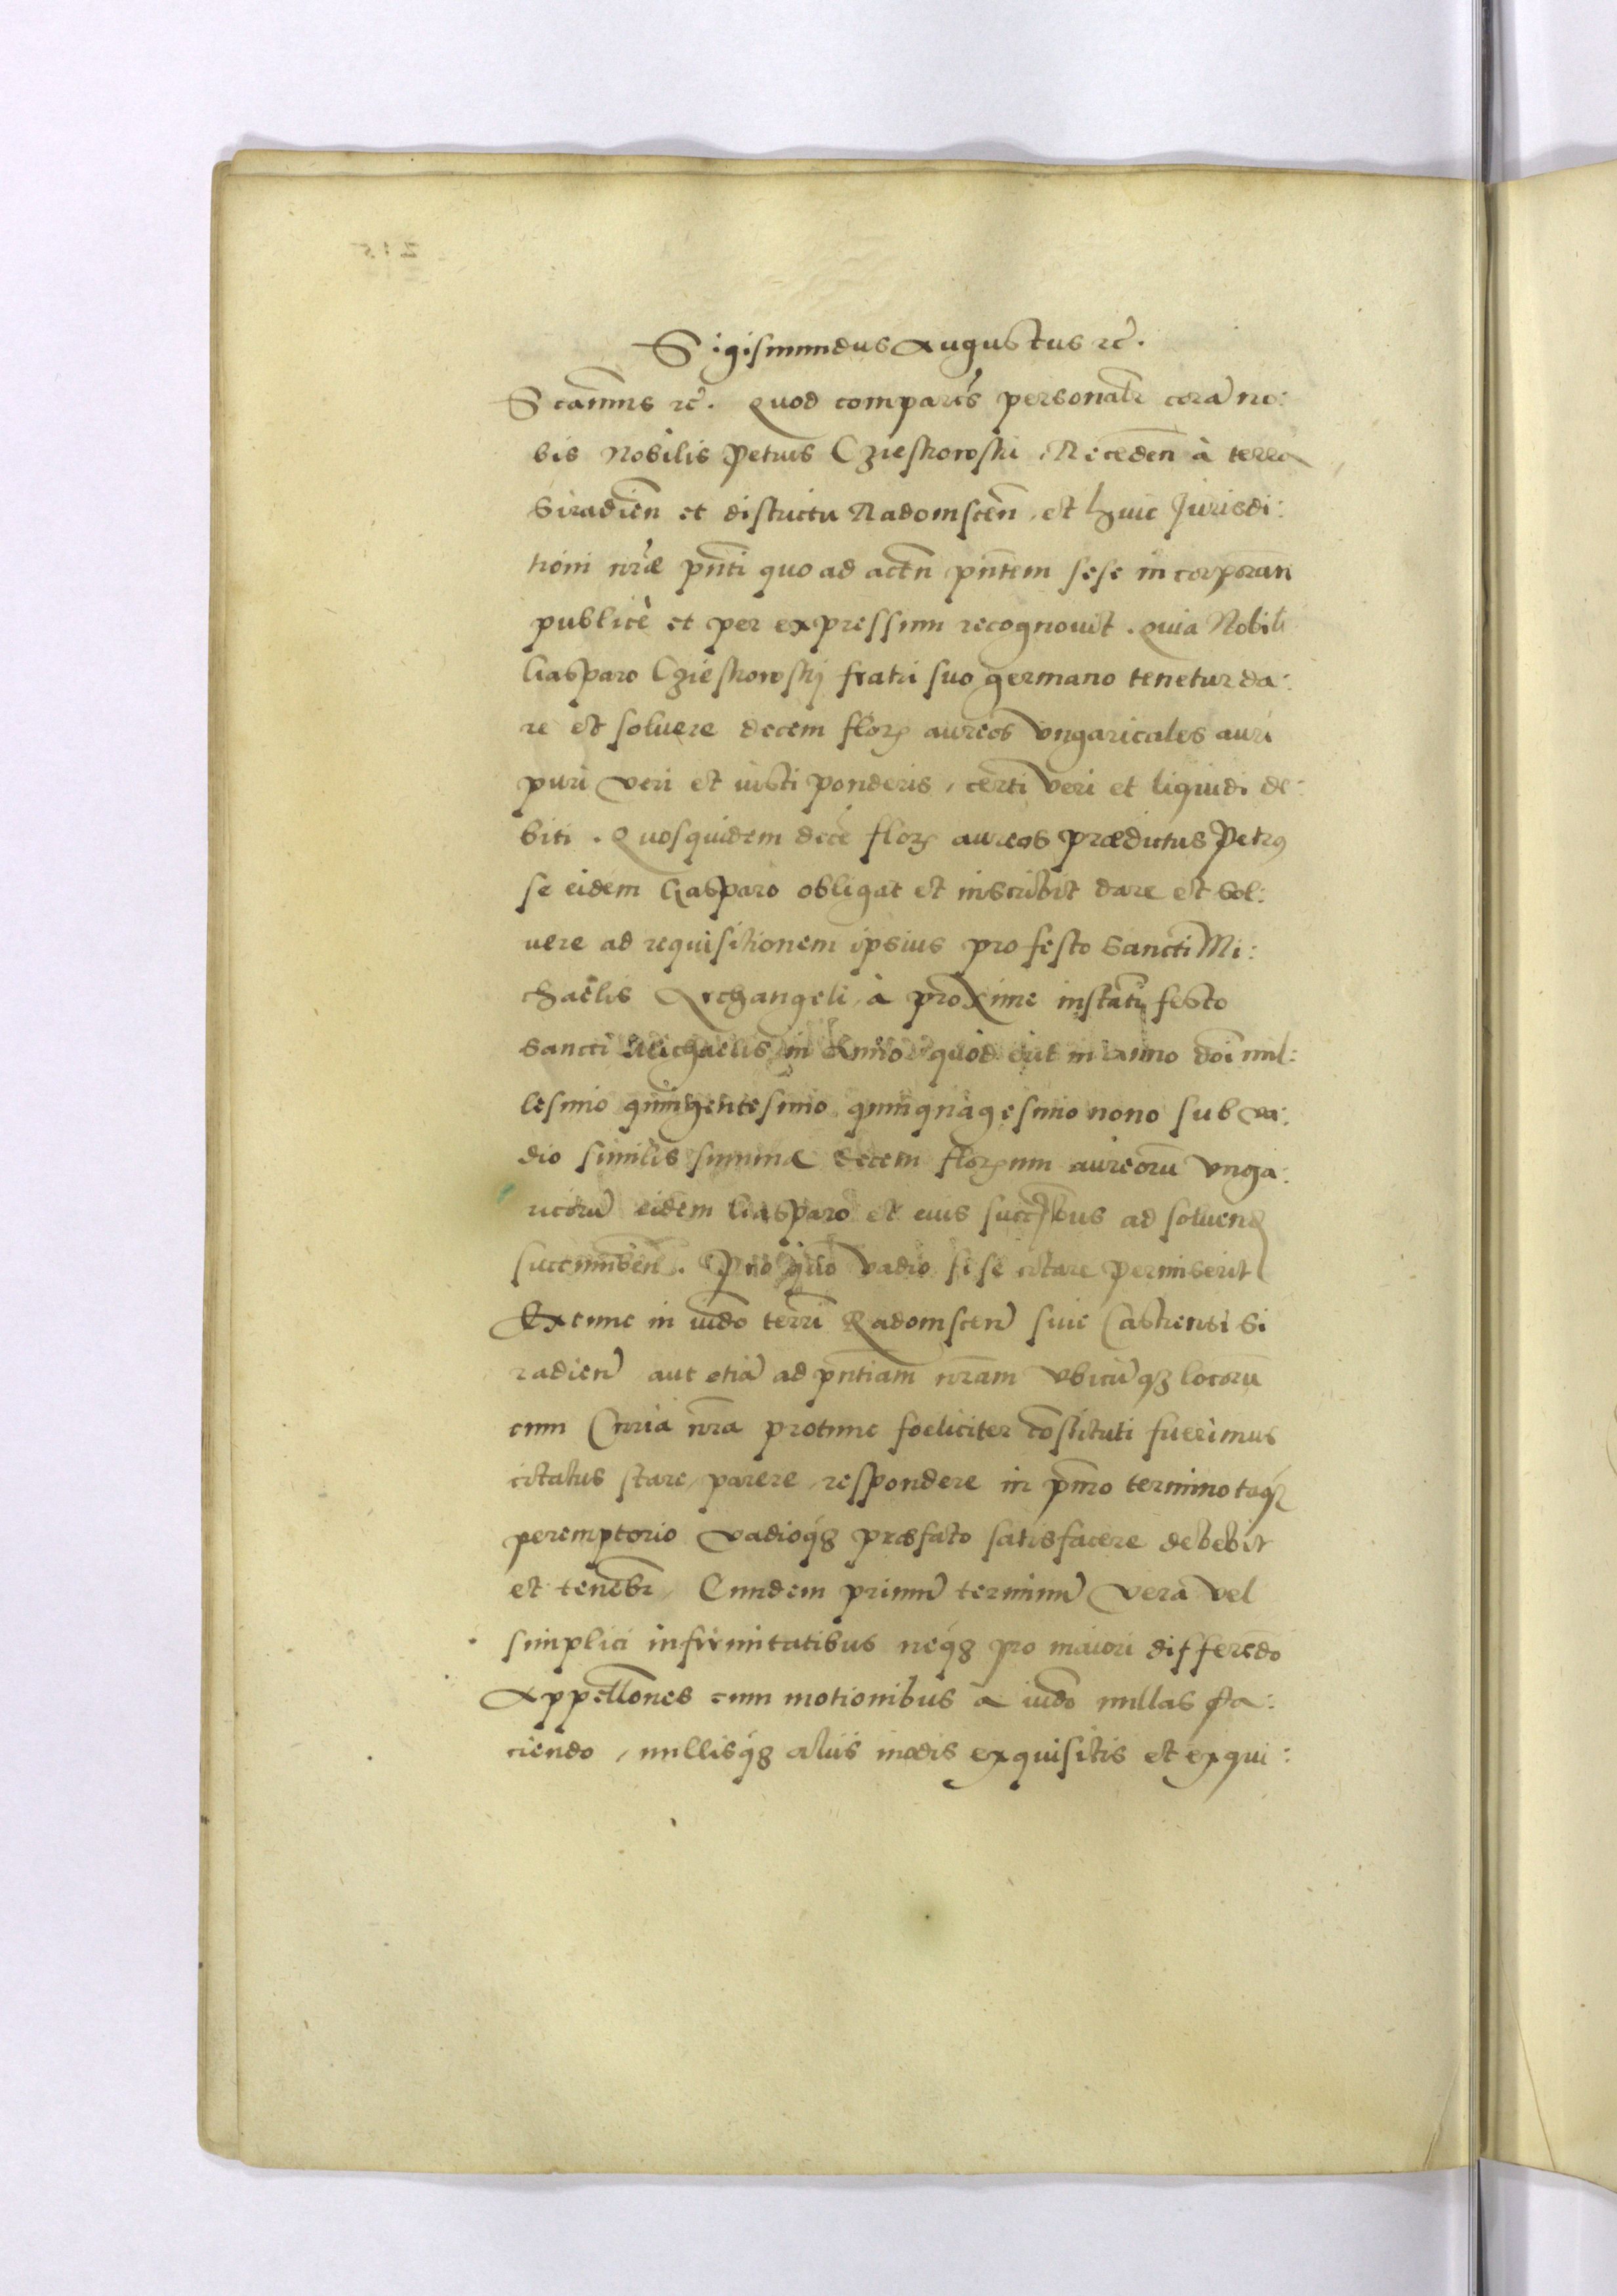 Sigismundus Augustus etc̃.
Scãmus etc̃. Quod comparẽs personaltr̃ corã no:
bis Nobilis Petrus Czieskowski, Recedeñ à terra
Siradieñ et districtu Radomsceñ, et huic Jurisdi:
tioni nrãe pñti quo ad actũ pñtem sese incorporañ
publicè et per expressum recognovit. Quia Nobili
Gasparo Czieskowskj fratri suo germano tenetur da:
re et solvere decem flor̃ aureos ungaricales auri
puri veri et iusti ponderis, certi veri et liquidi de:
biti. Quosquidem decẽ flor̃ aureos prædictus Petrus
se eidem Gasparo obligat et inscribit dare et sol:
vere ad requisitionem ipsius pro festo Sancti Mi:
chaëlis Archangeli, à proxime instanti festo
Sancti Michaelis in Anno quod erit in anno doĩ mil:
lesimo quingentesimo quinquagesimo nono sub va:
dio similis summæ decem florenum aureorũ unga:
ricorũ eidem Gasparo et eius succ̃bus ad solvend
succumbeñ. Pro quo vadio si se citare permiserit
Extunc in iudo terrĩ Radomsceñ sive Castrensi Si
radieñ aut etiã ad pñtiam nrãm ubicũqꝫ locorũ
cum Curia nrã protunc foeliciter cõstituti fuerimus
citatus stare, parere, respondere in pm̃o termino tãqꝫ
peremptorio vadioqꝫ præfato satisfacere debebit
et tenebr̃, Eundem primũ terminũ vera vel
simplici infirmitatibus neqꝫ pro maiori differẽdo
Appellõnes cum motionibus a iudo nullas fa:
ciendo, nullisqꝫ aliis modis exquisitis et exqui: